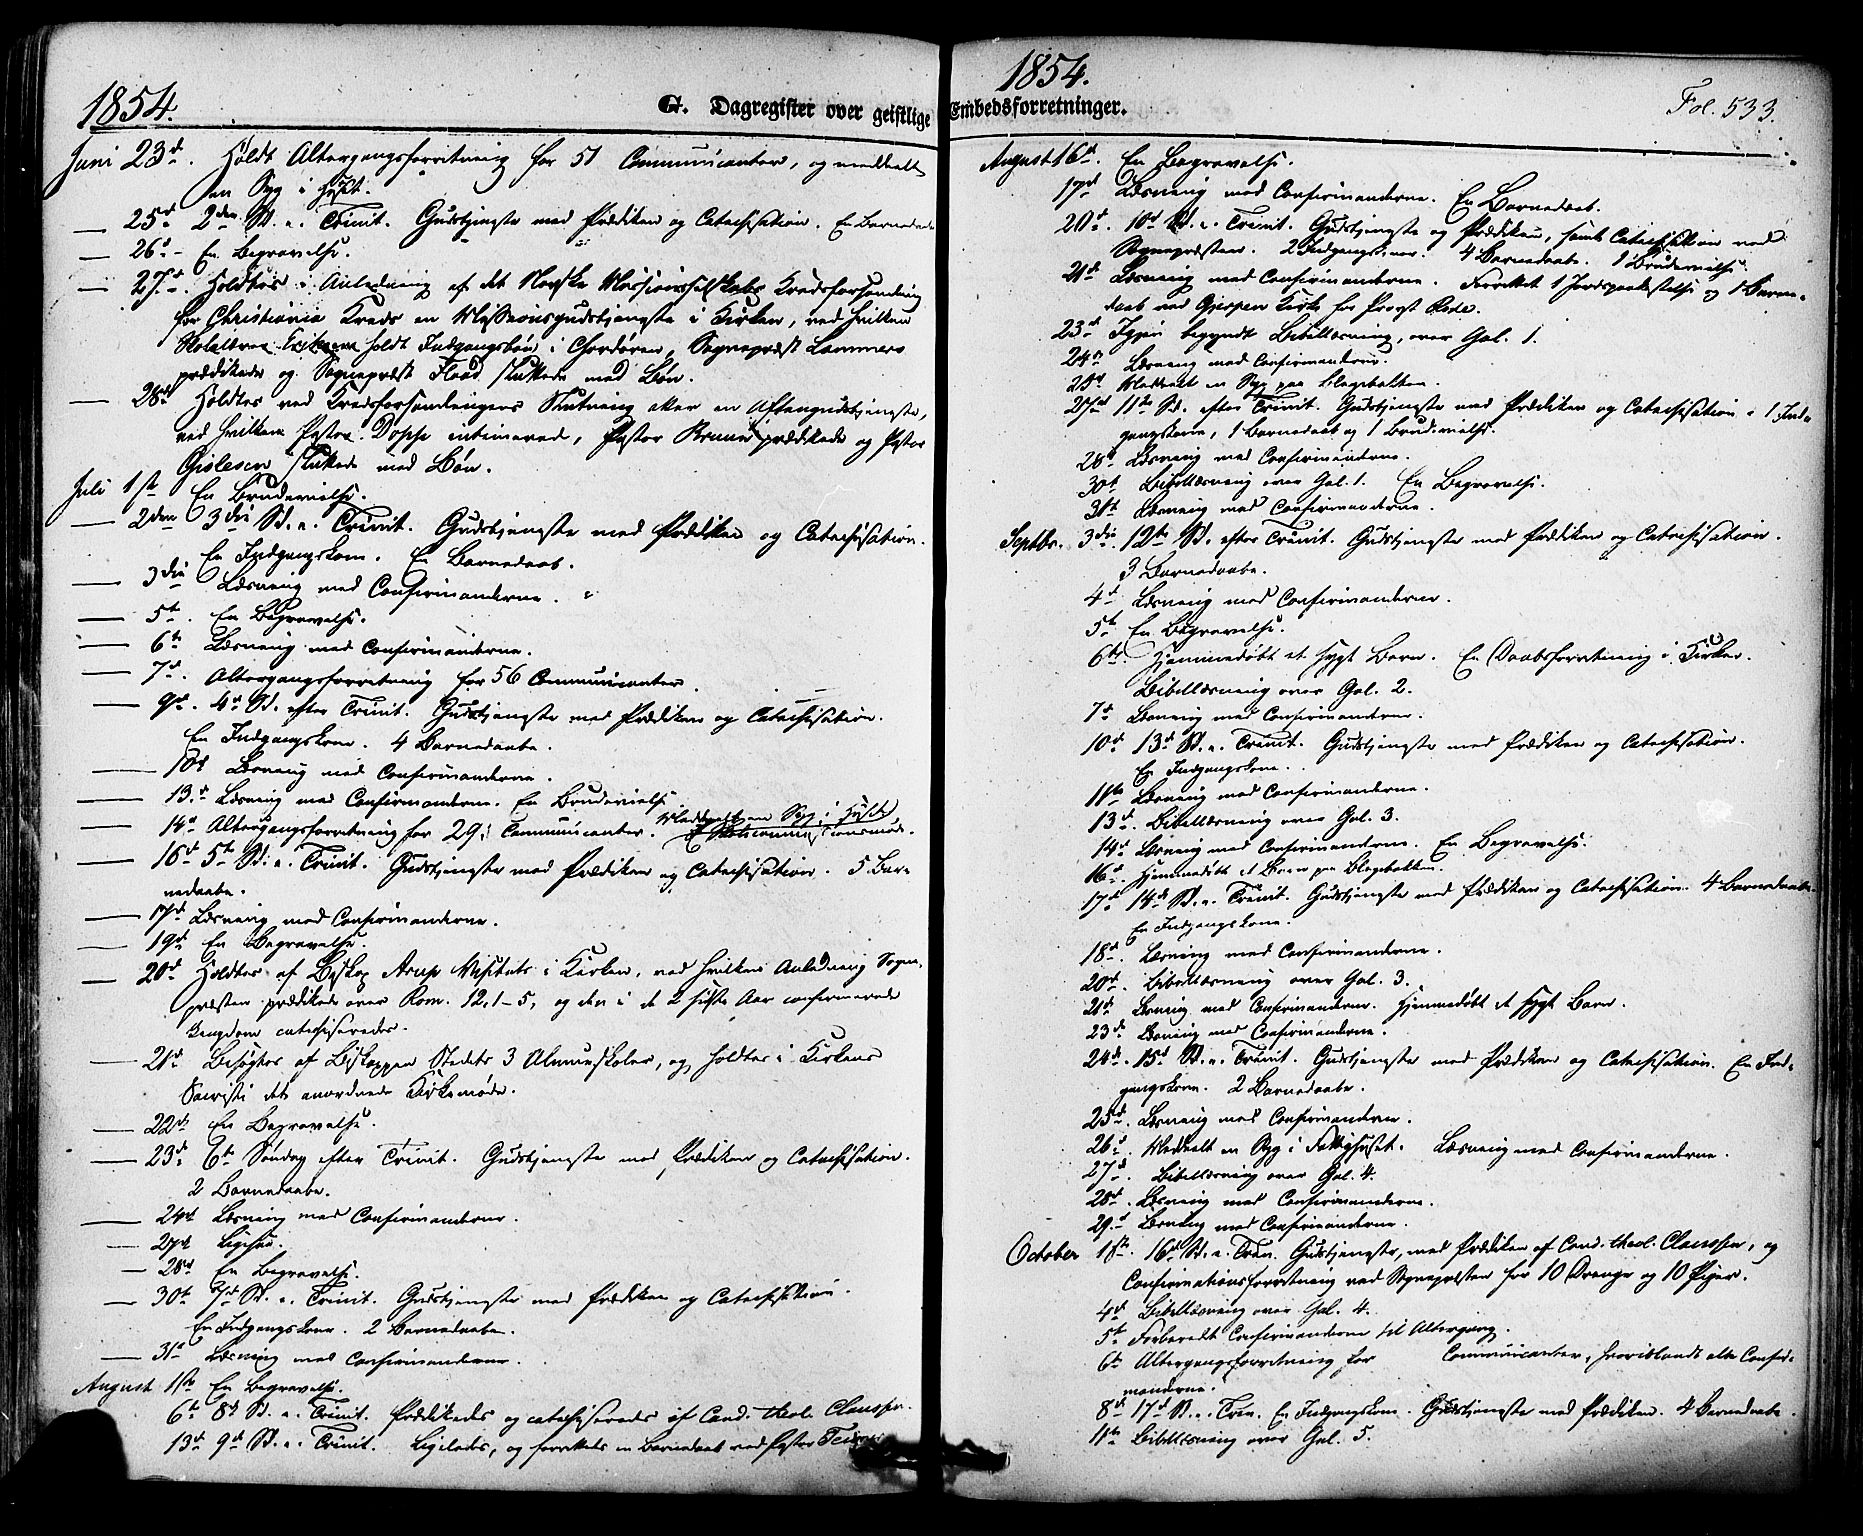 1854.
G. Dagregister over geistlige
Juni 23d. Holdt Altergangsforretning for 51 Communicanter, og meddeelt
en Syg i Huset.
25d 2den Sd. e. Trinit. Gudstjeneste med Prædiken og Catechisation. En Barnedaab
26d - En Begravelse.
27d. Holdtes i Anledning af det Norske Missionsselskabs Kredsforsamling
for Christiania Kreds en Missionsgudstjeneste i Kirken, ved hvilken
Skolelærer holdt Indgangsbøn i Chordøren, Sognepræst Lammers
prædikede og Sognepræst Flood sluttede med Bøn.
28d Holdtes ved Kredsforsamlingens Slutning atter en Aftengudstjeneste,
ved hvilken Pastor Doppe intimerede, Pastor Bruun prædikede og Pastor
Gislesen sluttede med Bøn.
Juli 1ste En Brudevielse.
2den 3die Sd. e. Trinit. Gudstjeneste med Prædiken og Catechisation.
En Indgangskone. En Barnedaab.
3die Læsning med Confirmanderne.
5te. En Begravelse.
6te Læsning med Confirmanderne.
7d. Altergangsforretning for 56 Communicanter.
9d. 4d Sd. efter Trinit. Gudstjeneste med Prædiken og Catechisation.
En Indgangskone. 4 Barnedaabe.
10d Læsning med Confirmanderne.
13d Læsning med Confirmanderne. En Brudevielse
14d Altergangsforretning for 29 Communicanter. Meddeelt en Syg i
16d 5te Sd. e. Trinit. Gudstjeneste med Prædiken og Catechisation. 5 Bar-
nedaabe.
17d Læsning med Confirmanderne.
19d En Begravelse.
20d Holdtes af Biskop Arup Visitats i Kirken, ved hvilken Anledning Sogne-
præsten prædikede over Rom. 12, 1-5, og den i de 2 sidste Aar confirmerede
Ungdom catechiseredes.
21d Besøgtes af Biskoppen Stedets 3 Almueskoler, og holdtes i Kirkens
Sacristi det anordnede Kirkemøde.
22d En Begravelse.
23d 6te Søndag efter Trinit. Gudstjeneste med Prædiken og Catechisation.
2 Barnedaabe.
24d Læsning med Confirmanderne.
27d Ligesaa.
28d En Begravelse.
30te 7d Sd. e. Trinit. Gudstjeneste med Prædiken og Catechisation.
En Indgangskone. 2 Barnedaabe.
31d Læsning med Confirmanderne.
August 1ste En Begravelse.
6te 8d Sd. e. Trinit. Prædikedes og catechiseredes af Cand. theol. Claussen.
13d 9d Sd. e. Trinit. Ligeledes, og forrettedes en Barnedaab ved Pastor
1854.
Embedsforretninger.
Fol. 533.
August 16d. En Begravelse.
17d Læsning med Confirmanderne. En Barnedaab.
20d. 10d Sd. e. Trinit. Gudstjeneste og Prædiken, samt Catechisation ved
Sognepræsten. 2 Indgangskoner. 4 Barnedaabe. 1 Brudevielse.
21d Læsning med Confirmanderne. Forrettet 1 Jordspaakastelse og 1 Barne-
daab ved Gjerpen Kirke for Provst Rode.
23d Igjen begyndt Bibellæsning, over Gal. 1.
24d Læsning med Confirmanderne.
25d Meddeelt en Syg paa Blegebakken.
27d 11te Sd. efter Trinit. Gudstjeneste med Prædiken og Catechisation. 1 Ind-
gangskone, 1 Barnedaab og 1 Brudevielse.
28d Læsning med Confirmanderne.
30te Bibellæsning over Gal. 1. En Begravelse.
31te Læsning med Confirmanderne.
Septbr. 3die. 12te Sd. efter Trinit. Gudstjeneste med Prædiken og Catechisation.
3 Barnedaabe.
4d Læsning med Confirmanderne.
5te En Begravelse.
6te. Hjemmedøbt et sygt Barn. En Daabsforretning i Kirken.
Bibellæsning over Gal. 2.
7d Læsning med Confirmanderne.
10d 13d Sd. e. Trinit. Gudstjeneste med Prædiken og Catechisation.
En Indgangskone.
11te Læsning med Confirmanderne.
13d. Bibellæsning over Gal. 3.
14d Læsning med Confirmanderne. En Begravelse.
16d. Hjemmedøbt et Barn paa Blegebakken.
17d 14d Sd. e. Trinit. Gudstjeneste med Prædiken og Catechisation. 4 Barnedaabe.
En Indgangskone.
18d. Læsning med Confirmanderne.
20d. Bibellæsning over Gal. 3.
21d Læsning med Confirmanderne. Hjemmedøbt et sygt Barn.
23d Læsning med Confirmanderne.
24d. 15d Sd. e. Trinit. Gudstjeneste med Prædiken og Catechisation. En Ind-
gangskone. 2 Barnedaabe.
25d. Læsning med Confirmanderne.
26d Meddeelt en Syg i Fattighuset. Læsning med Confirmanderne.
27d Bibellæsning over Gal. 4.
28d Læsning med Confirmanderne.
29d Læsning med Confirmanderne.
October 1ste. 16d Sd. e. Trin. Gudstjeneste, med Prædiken af Cand. theol. Claussen, og
Confirmationsforretning ved Sognepræsten for 10 Drenge og 10 Piger.
4d Bibellæsning over Gal. 4.
5te Forberedt Confirmanderne til Altergang.
6te Altergangsforretning for Communicanter, hvoriblandt alle Confir-
manderne.
8d 17d Sd. e. Trin. En Indgangskone. Gudstjeneste med Prædiken. 4 Barnedaabe.
11te Bibellæsning over Gal. 5.